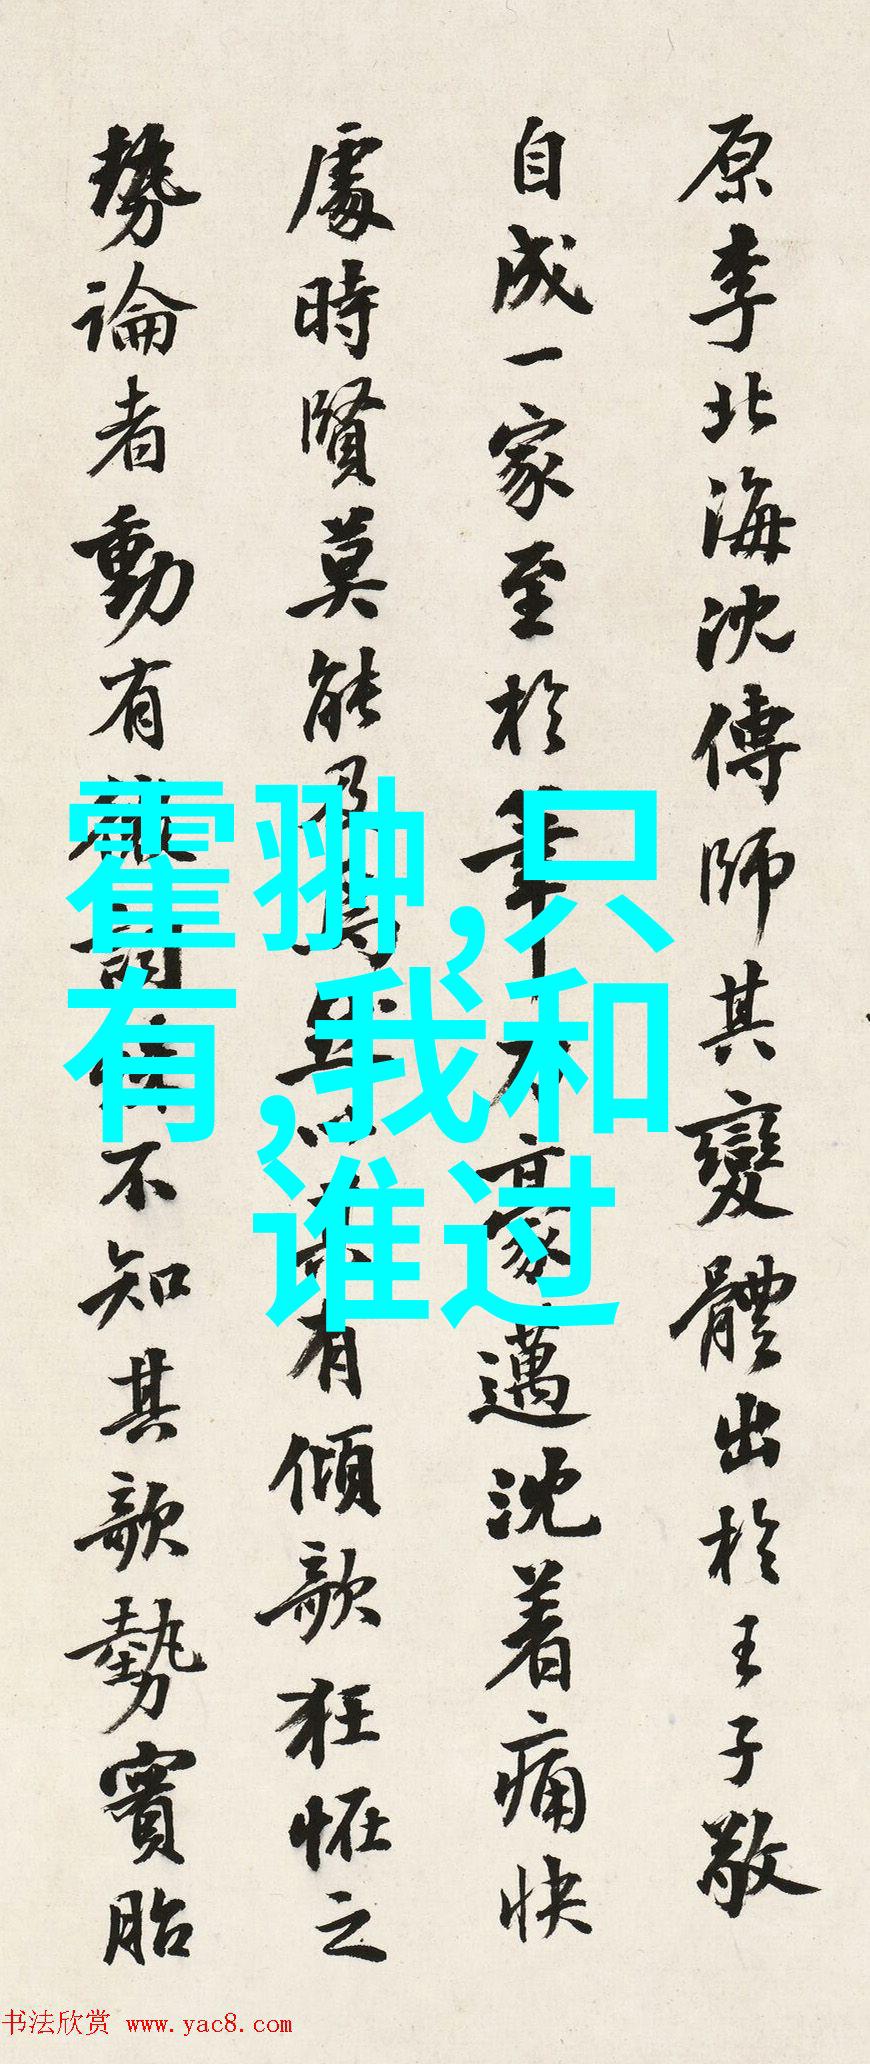 原李北海沈傳師其變體出於王子敬
自成一家至於筆力豪邁沈着痛快
處時賢莫能及焉然以其有傾欹狂怪之
勢論者動有不知其欹勢實胎
霍翀,只
有,我和
谁过
书法欣赏 www.yac8.com